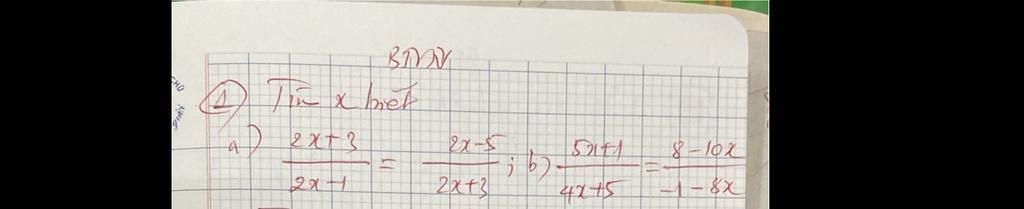 BTVN
① Tìm x biết
a) \frac{2x+3}{2x-1} = \frac{2x-5}{2x+3} ; b) \frac{5x+1}{4x+5} = \frac{8-10x}{-1-8x}